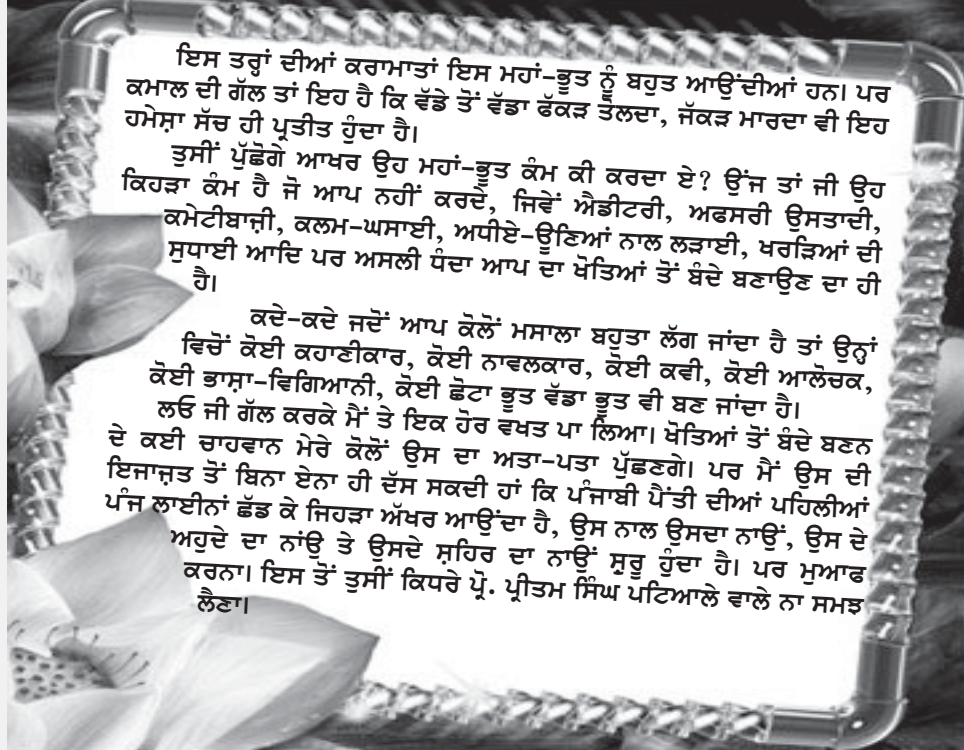 ਇਸ ਤਰ੍ਹਾਂ ਦੀਆਂ ਕਰਾਮਾਤਾਂ ਇਸ ਮਹਾਂ-ਭੂਤ ਨੂੰ ਬਹੁਤ ਆਉਂਦੀਆਂ ਹਨ। ਪਰ
ਕਮਾਲ ਦੀ ਗੱਲ ਤਾਂ ਇਹ ਹੈ ਕਿ ਵੱਡੇ ਤੋਂ ਵੱਡਾ ਫੱਕੜ ਤੋਲਦਾ, ਜੱਕੜ ਮਾਰਦਾ ਵੀ ਇਹ
ਹਮੇਸ਼ਾ ਸੱਚ ਹੀ ਪ੍ਰਤੀਤ ਹੁੰਦਾ ਹੈ।
ਤੁਸੀਂ ਪੁੱਛੋਗੇ ਆਖਰ ਉਹ ਮਹਾਂ-ਭੂਤ ਕੰਮ ਕੀ ਕਰਦਾ ਏ? ਉਂਜ ਤਾਂ ਜੀ ਉਹ
ਕਿਹੜਾ ਕੰਮ ਹੈ ਜੋ ਆਪ ਨਹੀਂ ਕਰਦੇ, ਜਿਵੇਂ ਐਡੀਟਰੀ, ਅਫਸਰੀ ਉਸਤਾਦੀ,
ਕਮੇਟੀਬਾਜ਼ੀ, ਕਲਮ-ਘਸਾਈ, ਅਧੀਏ-ਊਣਿਆਂ ਨਾਲ ਲੜਾਈ, ਖਰੜਿਆਂ ਦੀ
ਸੁਧਾਈ ਆਦਿ ਪਰ ਅਸਲੀ ਧੰਦਾ ਆਪ ਦਾ ਖੋਤਿਆਂ ਤੋਂ ਬੰਦੇ ਬਣਾਉਣ ਦਾ ਹੀ
ਹੈ।
ਕਦੇ-ਕਦੇ ਜਦੋਂ ਆਪ ਕੋਲੋਂ ਮਸਾਲਾ ਬਹੁਤਾ ਲੱਗ ਜਾਂਦਾ ਹੈ ਤਾਂ ਉਨ੍ਹਾਂ
ਵਿਚੋਂ ਕੋਈ ਕਹਾਣੀਕਾਰ, ਕੋਈ ਨਾਵਲਕਾਰ, ਕੋਈ ਕਵੀ, ਕੋਈ ਆਲੋਚਕ,
ਕੋਈ ਭਾਸ਼ਾ-ਵਿਗਿਆਨੀ, ਕੋਈ ਛੋਟਾ ਭੂਤ ਵੱਡਾ ਭੂਤ ਵੀ ਬਣ ਜਾਂਦਾ ਹੈ।
ਲਓ ਜੀ ਗੱਲ ਕਰਕੇ ਮੈਂ ਤੇ ਇਕ ਹੋਰ ਵਖਤ ਪਾ ਲਿਆ। ਖੋਤਿਆਂ ਤੋਂ ਬੰਦੇ ਬਣਨ
ਦੇ ਕਈ ਚਾਹਵਾਨ ਮੇਰੇ ਕੋਲੋਂ ਉਸ ਦਾ ਅਤਾ-ਪਤਾ ਪੁੱਛਣਗੇ। ਪਰ ਮੈਂ ਉਸ ਦੀ
ਇਜਾਜ਼ਤ ਤੋਂ ਬਿਨਾ ਏਨਾ ਹੀ ਦੱਸ ਸਕਦੀ ਹਾਂ ਕਿ ਪੰਜਾਬੀ ਪੈਂਤੀ ਦੀਆਂ ਪਹਿਲੀਆਂ
ਪੰਜ ਲਾਈਨਾਂ ਛੱਡ ਕੇ ਜਿਹੜਾ ਅੱਖਰ ਆਉਂਦਾ ਹੈ, ਉਸ ਨਾਲ ਉਸਦਾ ਨਾਉਂ, ਉਸ ਦੇ
ਅਹੁਦੇ ਦਾ ਨਾਂਉ ਤੇ ਉਸਦੇ ਸ਼ਹਿਰ ਦਾ ਨਾਉਂ ਸ਼ੁਰੂ ਹੁੰਦਾ ਹੈ। ਪਰ ਮੁਆਫ
ਕਰਨਾ। ਇਸ ਤੋਂ ਤੁਸੀਂ ਕਿਧਰੇ ਪ੍ਰੋ. ਪ੍ਰੀਤਮ ਸਿੰਘ ਪਟਿਆਲੇ ਵਾਲੇ ਨਾ ਸਮਝ
ਲੈਣਾ।